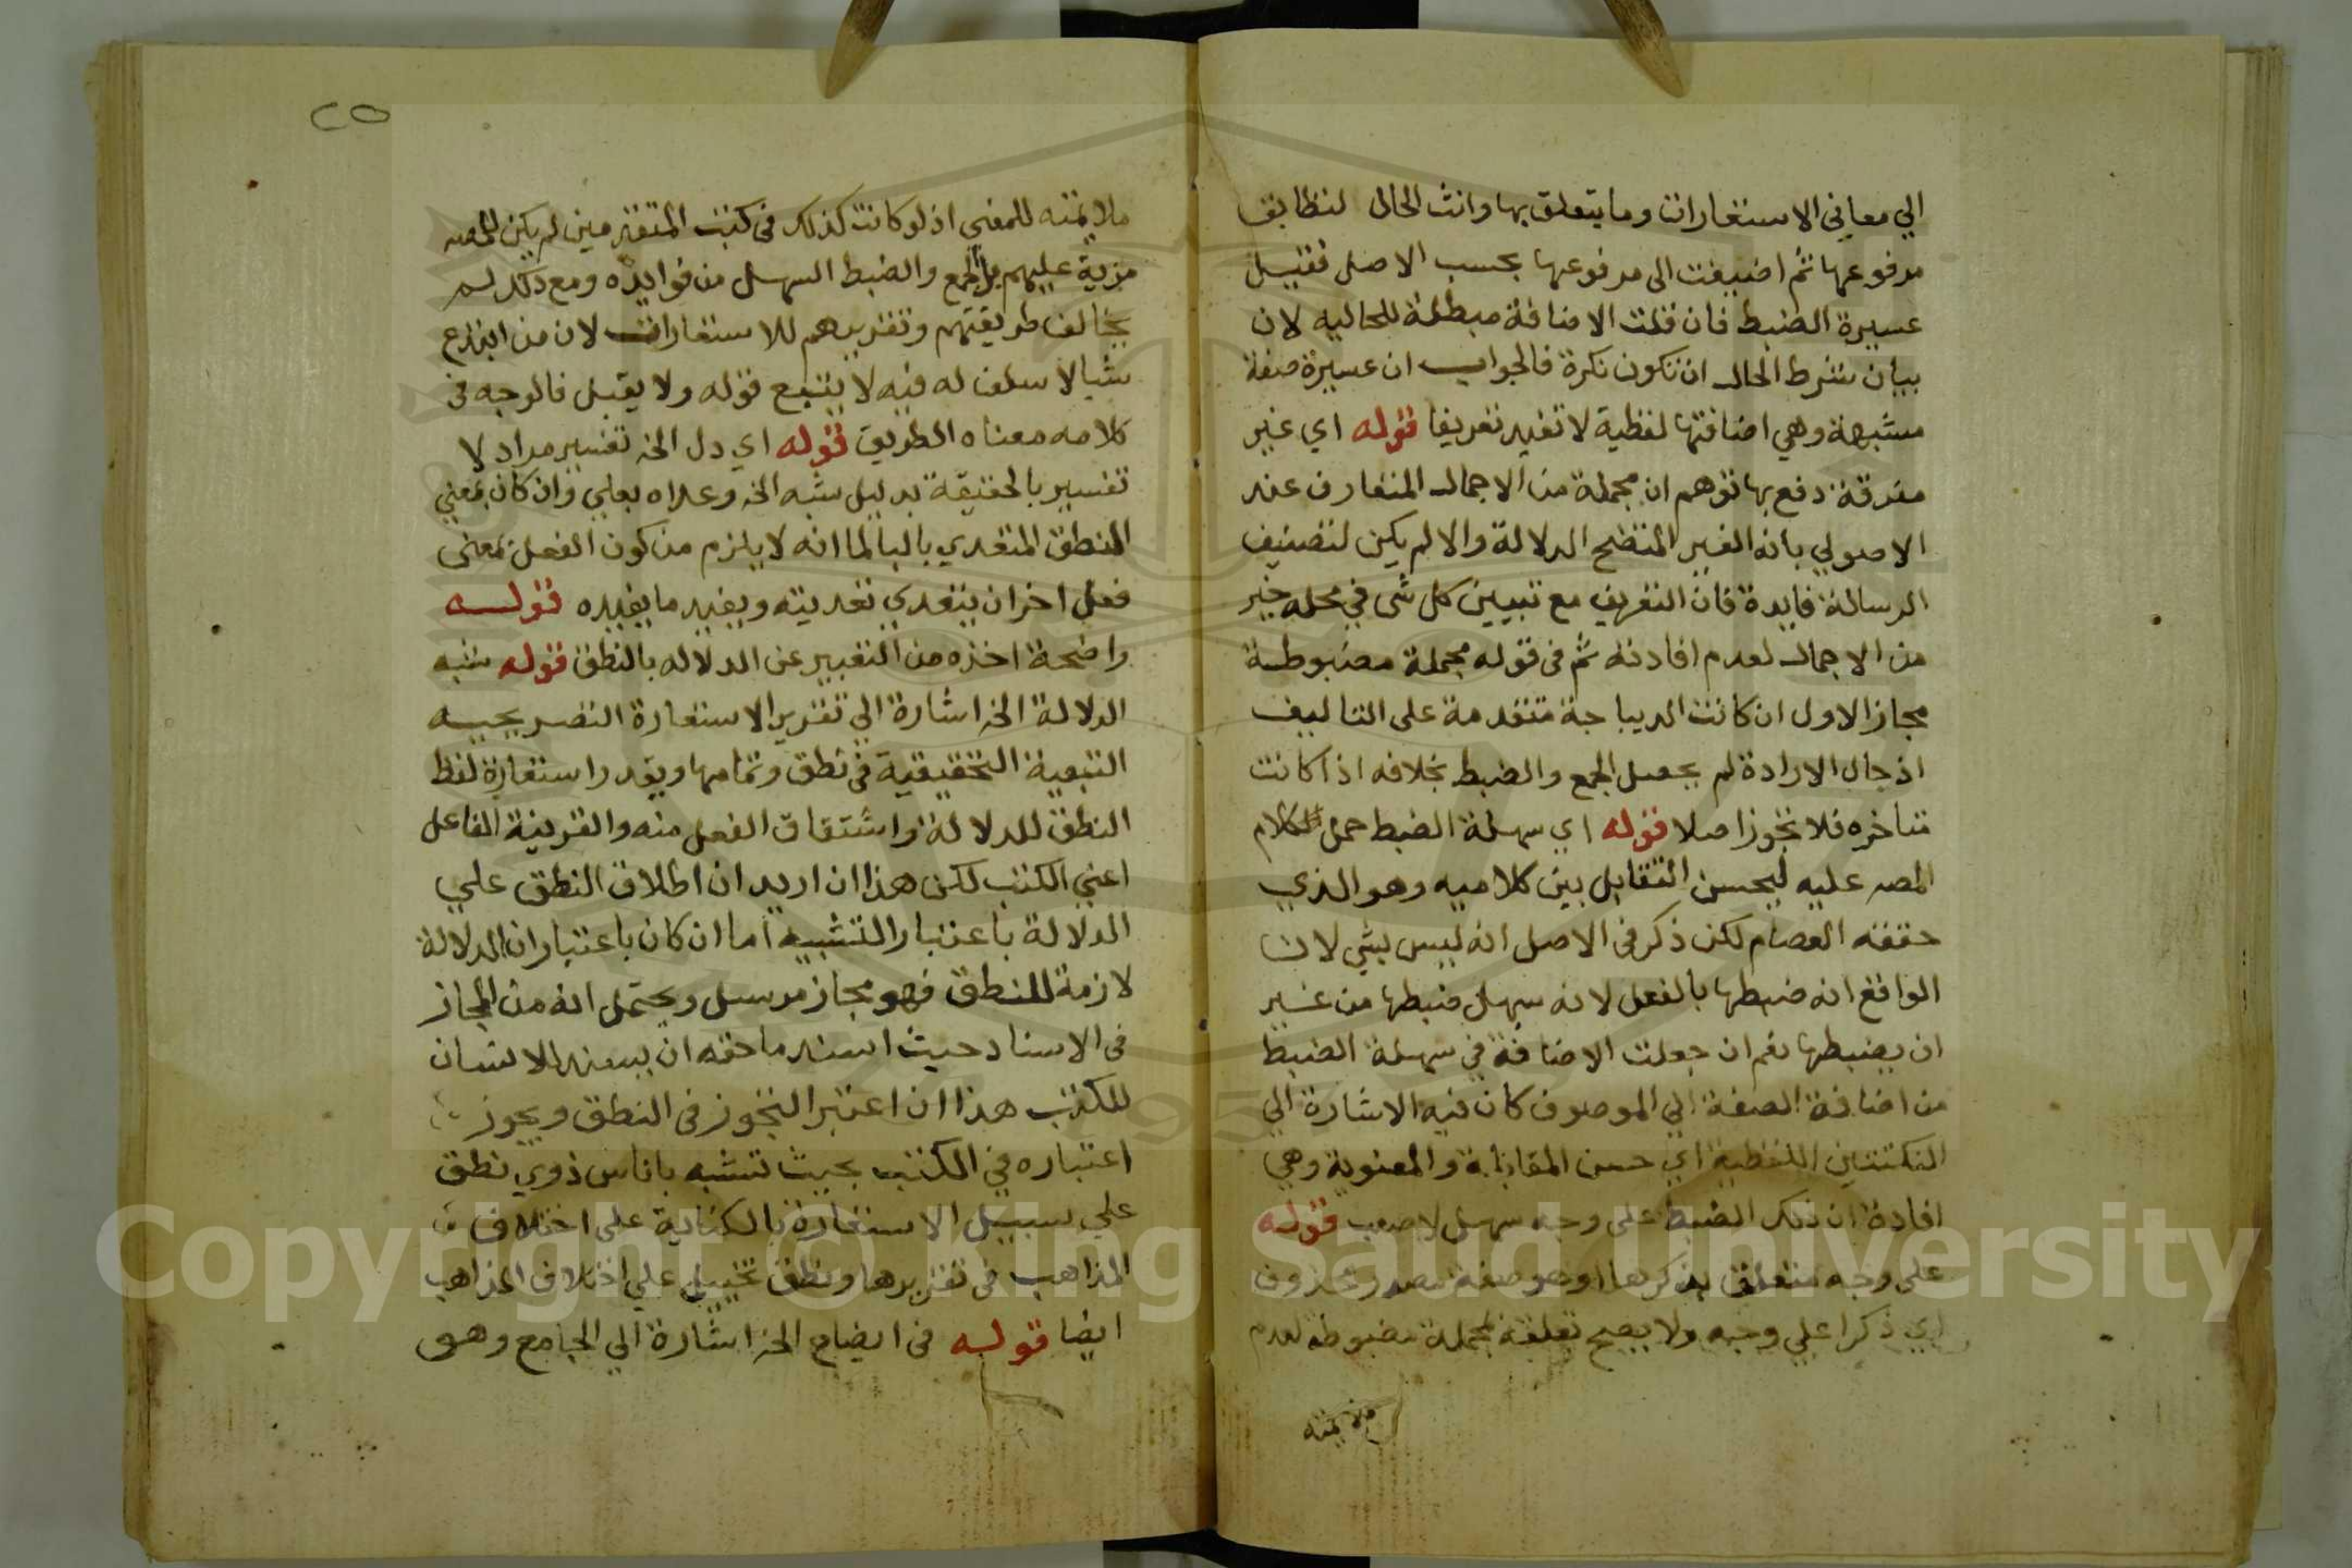 الي معاني الاستعارات وما يتعلق بها وانث الحال لتطابق
مرفوعها ثم اضيفت الى مرفوعها بحسب الاصل فقيل
عسيرة الضبط فان قلت الاضافة مبطلة للحاليه لان
بيان شرط الحال ان تكون نكرة فالجواب ان عسيرة صفة
مشبهة وهي اضافتها لفظية لا تفيد تعريفا قوله اي غير
مفرقة دفع بها توهم ان مجملة من الاجمال المتعارف عند
الاصولي بانه الغير المتضح الدلالة والا لم يكن لتصنيف
الرسالة فايدة فان التفريق مع تبيين كل شى في محله خير
من الاجمال لعدم افادته ثم فى قوله مجملة مضبوطة
مجاز الاول ان كانت الديباجة متقدمة على التاليف
اذ حال الارادة لم يحصل الجمع والضبط بخلافه اذا كانت
متاخره فلا تجوز اصلا قوله اي سهلة الضبط حمل كلام
المصه عليه ليحسن التقابل بين كلاميه وهو الذي
حققه العصام لكن ذكر فى الاصل انه ليس بشي لان
الواقع انه ضبطها بالفعل لانه سهل ضبطها من غير
ان يضبطها نعم ان جعلت الاضافة في سهلة الضبط
من اضافة الصفة الي الموصوف كان فيه الاشارة الي
النكتتين اللفظية اي حسن المقابلة والمعنوية وهي
افادة ان ذلك الضبط على وجه سهل لا صعب قوله
على وجه متعلق بذكرها او هو صفة مصدر محذوف
اي ذكرا علي وجه ولا يصح تعلقه بمجملة مضبوطة لعدم
ملايمته
٢٥
ملايمته للمعني اذ لو كانت كذلك فى كتب المتقدمين لم يكن للمصه
مزية عليهم بل الجمع والضبط السهل من فوايده ومع ذلك لم
يخالف طريقتهم وتقريرهم للاستعارات لان من ابتدع
شيا لا سلف له فيه لا يتبع قوله ولا يقبل فالوجه فى
كلامه معناه الطريق قوله اي دل الخ تفسير مراد لا
تفسير بالحقيقة بدليل شبه الخ وعداه بعلي وان كان بمعني
النطق المتعدي بالبا لما انه لا يلزم من كون الفعل بمعنى
فعل اخر ان يتعدي تعديته ويفيد ما يفيده قوله
واضحة اخذه من التعبير عن الدلاله بالنطق قوله شبه
الدلالة الخ اشارة الي تقرير الاستعارة التصريحيه
التبعية التحقيقية في نطق وتمامها ويقدر استعارة لفظ
النطق للدلالة واشتقاق الفعل منه والقرينة الفاعل
اعني الكتب لكن هذا ان اريد ان اطلاق النطق علي
الدلالة باعتبار التشبيه اما ان كان باعتبار ان الدلالة
لازمة للنطق فهو مجاز مرسل ويحتمل انه من المجاز
فى الاسناد حيث اسند ما حقه ان يسند للانسان
للكتب هذا ان اعتبر التجوز فى النطق ويجوز
اعتباره في الكتب بحيث تشبه باناس ذوي نطق
علي سبيل الاستعارة بالكناية على اختلاف
المذاهب فى تقريرها ونطق تخييل علي اختلاف المذاهب
ايضا قوله فى ايضاح الخ اشارة الي الجامع وهو
Copyright © King Saud University